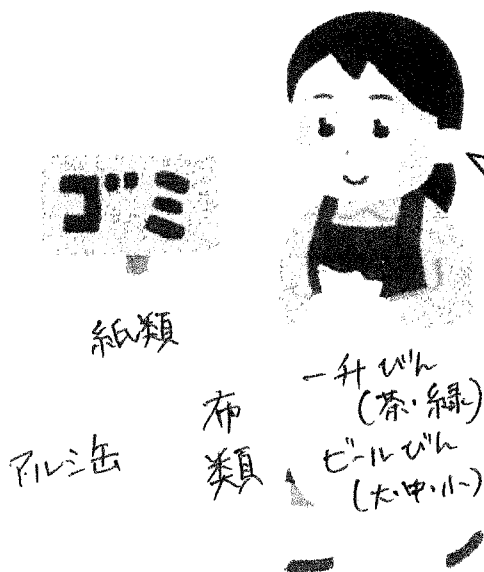 ゴミ
紙類
アルミ缶
布
類
一升びん
(茶・緑)
ビールびん
(大・中・小)